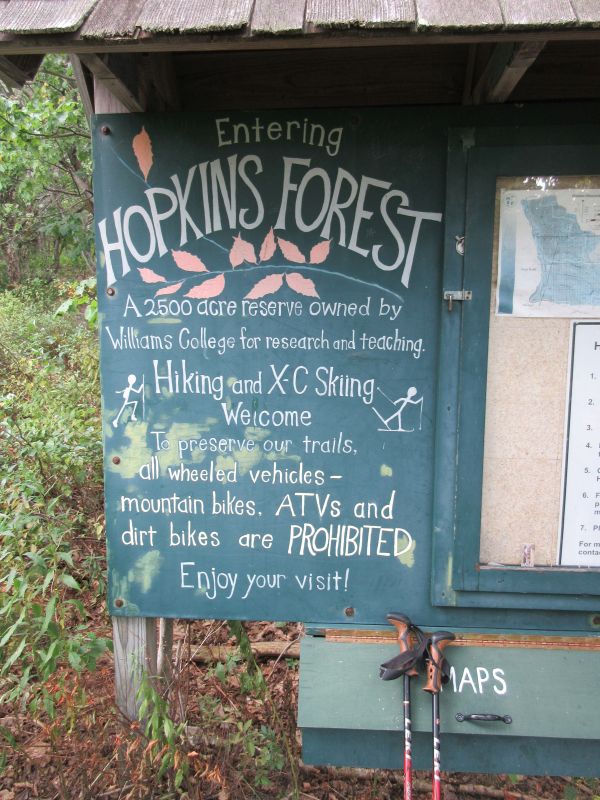 Entering
HOPKINS FOREST
A 2500 acre reserve owned by
Williams College for research and teaching.
Hiking and X-C Skiing
Welcome
To preserve our trails,
all wheeled vehicles –
mountain bikes, ATVs and
dirt bikes are PROHIBITED
Enjoy your visit!
H
1.
2.
3.
4.
5.
6.
7.
For m
contac
MAPS
LEKI